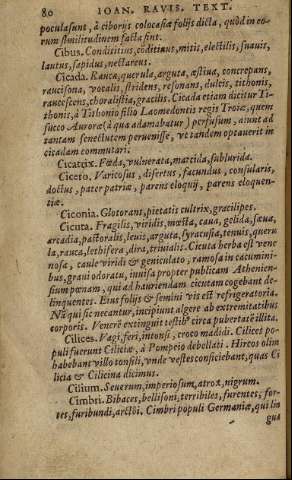 80 IOAN. RAVIS. TEXT.
poculasunt, à ciborijs colocasiæ folijs dicta, quòd in eo-
rum similitudinem facta sint.
Cibus. Condititius, coditaneꝰ, mitis, electilis, suauis,
lautus, sapidus, nectareus.
Cicada. Rauca, querula, arguta, æstiua, concrepans,
raucisona, vocalis, stridens, resonans, dulcis, tithonis,
raucescens, choralistia, gracilis. Cicada etiam dicitur Ti-
thonis, à Tithonio filio Laomedontis regis Troiæ, quem
succo Auroræ (à qua adamabatur) perfusum, aiunt ad
tantam senectutem peruenisse, vt tandem optauerit in
cicadam commutari.
Cicatrix. Fœda, vulnerata, marcida, sublurida.
Cicero. Varicosus, disertus, facundus, consularis,
doctus, pater patriæ, parens eloquij, parens eloquen-
tiæ.
Ciconia. Glotorans, pietatis cultrix, græcilipes.
Cicuta. Fragilis, viridis, mœsta, caua, gelida, sæua,
arcadia, pastoralis, leuis, arguta, syracusia, tenuis, queru
la, rauca, lethifera, dira, trinalis. Cicuta herba est vene
nosa, caule viridi & geniculato, ramosa in cacumini-
bus, graui odoratu, inuisa propter publicam Athenien-
sium pœnam, qui ad hauriendam cicutam cogebant de-
linquentes. Eius folijs & semini vis est refrigeratoria.
Nã qui sic necantur, incipiunt algere ab extremitatibus
corporis. Venerẽ extinguit testibꝰ circa pubertatẽ illita.
Cilices. Vagi, feri, intonsi, croco madidi. Cilices po-
puli fuerunt Ciliciæ, à Pompeio debellati. Hircos olim
habebant villo tonsili, vnde vestes conficiebant, quas Ci
licia & Cilicina dicimus.
Cilium. Seuerum, imperiosum, atrox, nigrum.
Cimbri. Bibaces, bellisoni, terribiles, furentes, for-
tes, furibundi, arctoi. Cimbri populi Germaniæ, qui lin
gua